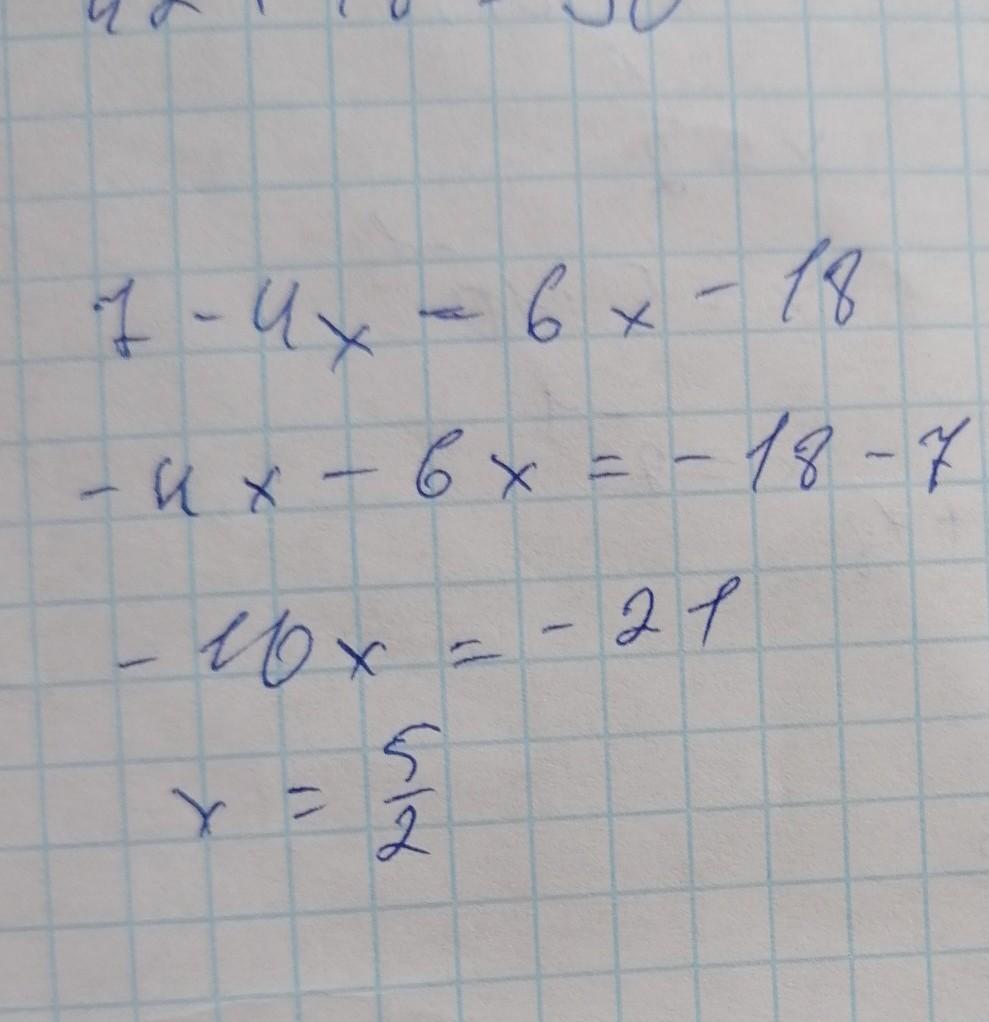 7 - 4x = 6x - 18
- 4x - 6x = - 18 - 7
- 10x = - 21
x = 5/2